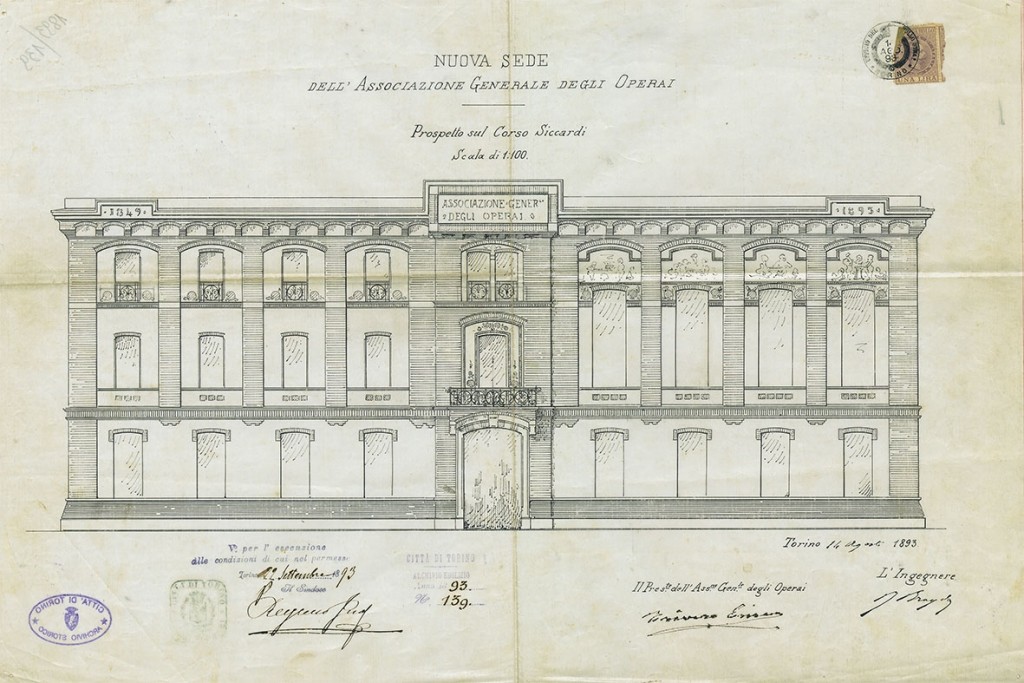 1893/139
NUOVA SEDE
DELL' ASSOCIAZIONE GENERALE DEGLI OPERAI
Prospetto sul Corso Siccardi
Scala di 1:100.
1
AGO
93
TORINO
UNA LIRA
1849
ASSOCIAZIONE GENER^le
DEGLI OPERAI
1893
Torino 14 Agosto 1893
V° per l' espansione
alle condizioni di cui nel permesso
Torino 22 Settembre 1893
Il Sindaco
CITTÀ DI TORINO
ARCHIVIO EDILIZIO
93.
N° 139.
Il Pres^te dell' Ass^ne Gen^le degli Operai
L' Ingegnere
CITTA' DI TORINO
ARCHIVIO STORICO